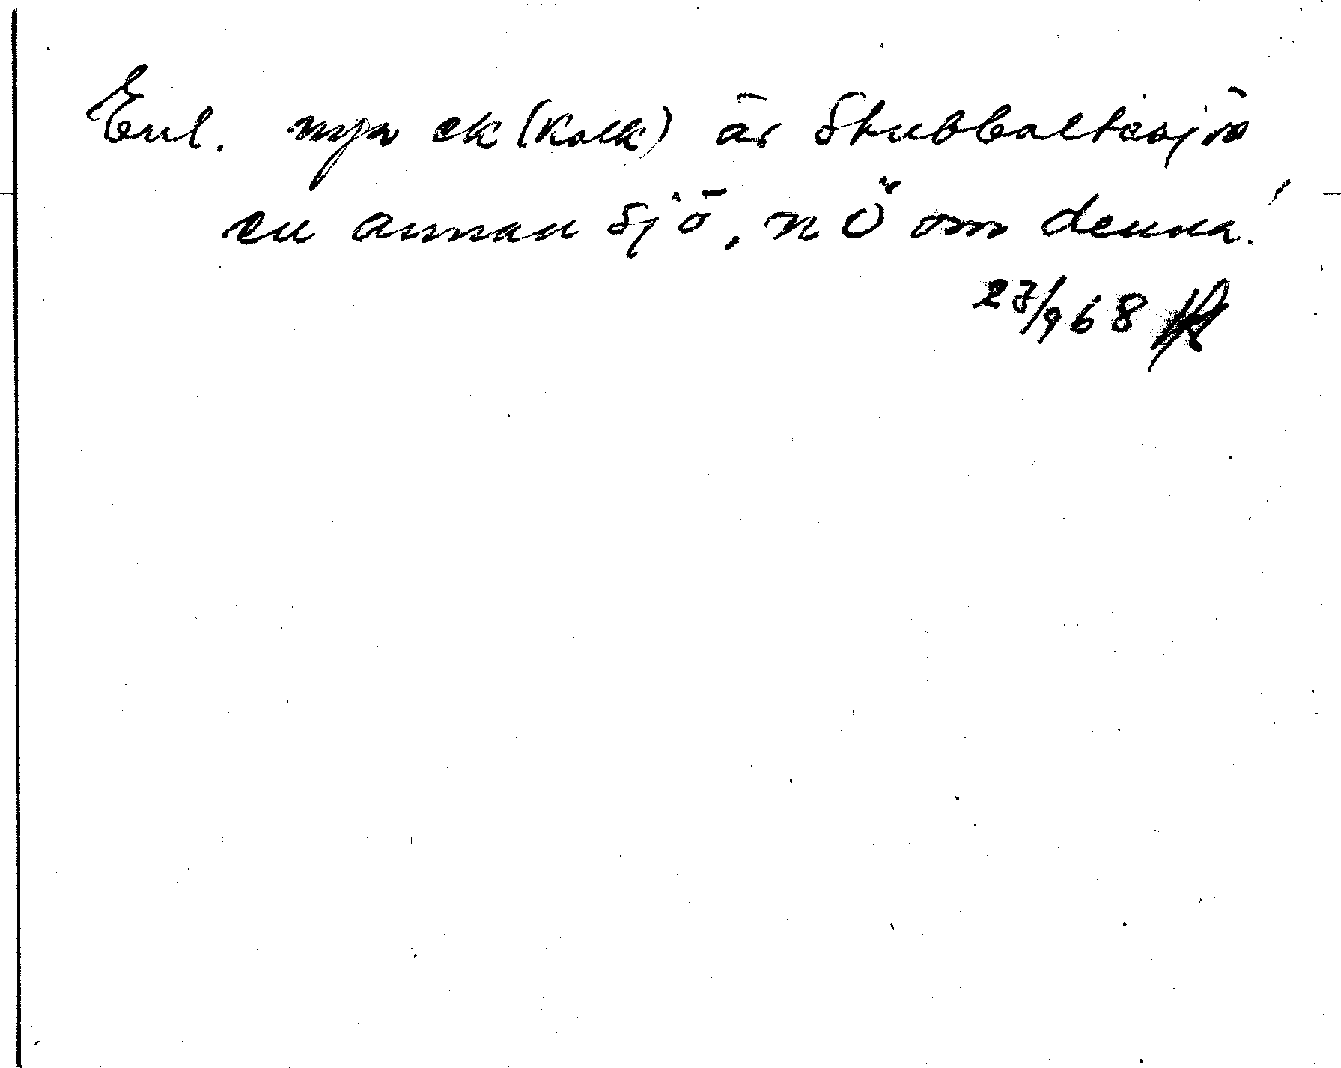 Enl. nya ek (Kolk) är Stubbaltesjön
en annan sjö, n Ö om denna!
27/9 68